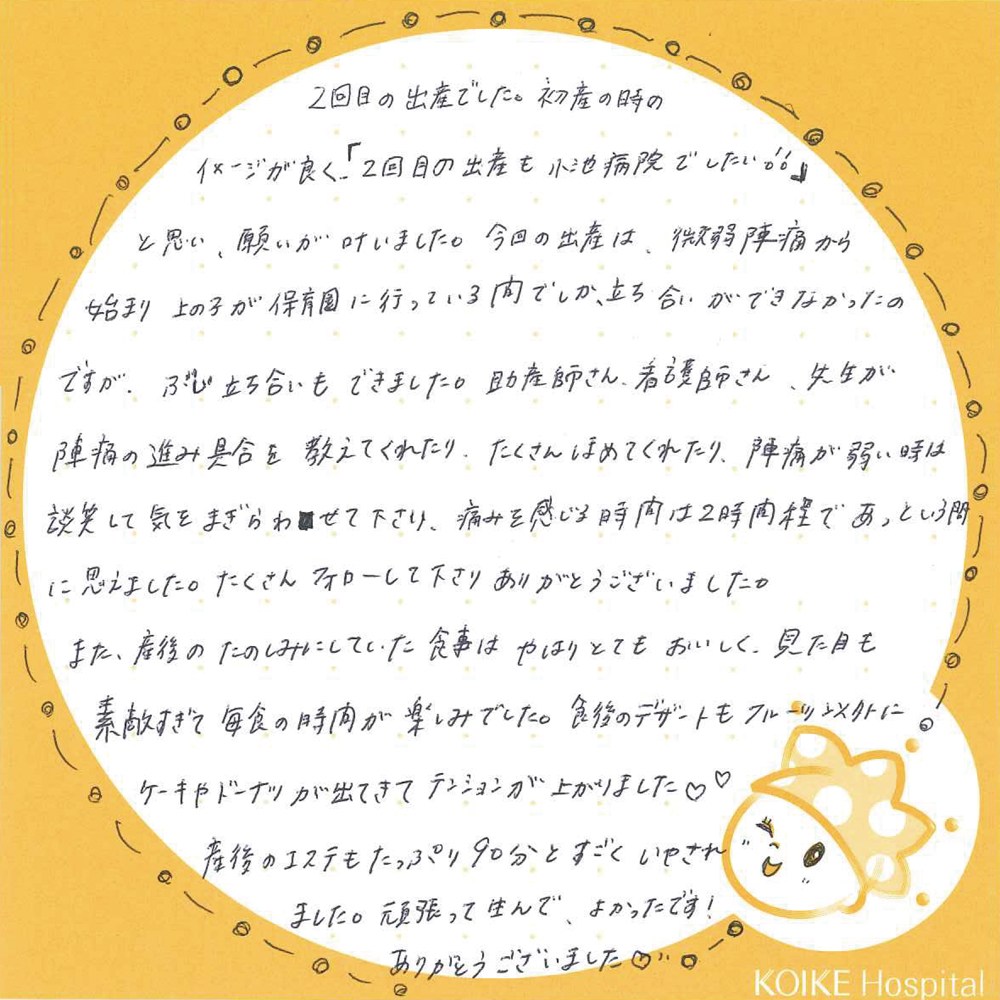 2回目の出産でした。初産の時の
イメージが良く「2回目の出産も小池病院でしたい!!」
と思い、願いが叶いました。今回の出産は、微弱陣痛から
始まり 上の子が保育園に行っている間でしか、立ち合いができなかったの
ですが、ぶじ立ち合いもできました。助産師さん、看護師さん、先生が
陣痛の進み具合を教えてくれたり、たくさんほめてくれたり、陣痛が弱い時は
談笑して気をまぎらわせて下さり、痛みを感じる時間は2時間程であっという間
に思えました。たくさんフォローして下さりありがとうございました。
また、産後のたのしみにしていた食事はやはりとてもおいしく、見た目も
素敵すぎて毎食の時間が楽しみでした。食後のデザートもフルーツ以外に
ケーキやドーナツが出てきてテンションが上がりました♡♡
産後のエステもたっぷり90分とすごくいやされ
ました。頑張って生んで、よかったです!
ありがとうございました♡
KOIKE Hospital